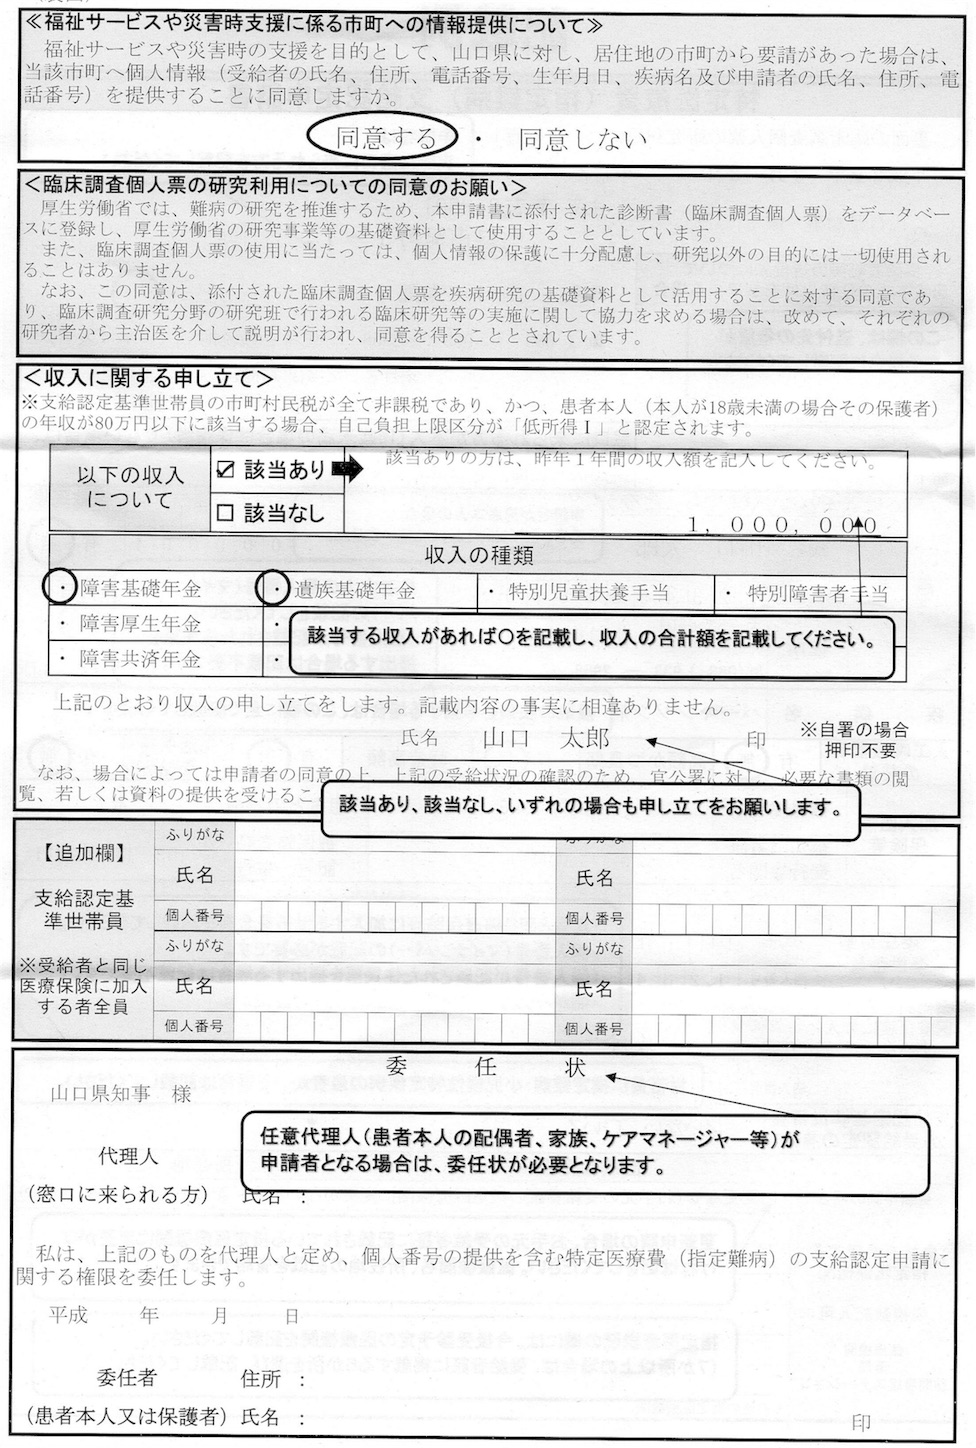 ≪福祉サービスや災害時支援に係る市町への情報提供について≫
福祉サービスや災害時の支援を目的として、山口県に対し、居住地の市町から要請があった場合は、
当該市町へ個人情報（受給者の氏名、住所、電話番号、生年月日、疾病名及び申請者の氏名、住所、電
話番号）を提供することに同意しますか。
同意する ・ 同意しない
＜臨床調査個人票の研究利用についての同意のお願い＞
厚生労働省では、難病の研究を推進するため、本申請書に添付された診断書（臨床調査個人票）をデータベー
スに登録し、厚生労働省の研究事業等の基礎資料として使用することとしています。
また、臨床調査個人票の使用に当たっては、個人情報の保護に十分配慮し、研究以外の目的には一切使用され
ることはありません。
なお、この同意は、添付された臨床調査個人票を疾病研究の基礎資料として活用することに対する同意であ
り、臨床調査研究分野の研究班で行われる臨床研究等の実施に関して協力を求める場合は、改めて、それぞれの
研究者から主治医を介して説明が行われ、同意を得ることとされています。
＜収入に関する申し立て＞
※支給認定基準世帯員の市町村民税が全て非課税であり、かつ、患者本人（本人が18歳未満の場合その保護者）
の年収が80万円以下に該当する場合、自己負担上限区分が「低所得Ⅰ」と認定されます。
以下の収入
について
☑ 該当あり
該当ありの方は、昨年１年間の収入額を記入してください。
□ 該当なし
１，０００，０００
収入の種類
・ 障害基礎年金
・ 遺族基礎年金
・ 特別児童扶養手当
・ 特別障害者手当
・ 障害厚生年金
・
該当する収入があれば○を記載し、収入の合計額を記載してください。
・ 障害共済年金
上記のとおり収入の申し立てをします。記載内容の事実に相違ありません。
氏名 山口 太郎 印
※自署の場合
押印不要
なお、場合によっては申請者の同意の上、上記の受給状況の確認のため、官公署に対し、必要な書類の閲
覧、若しくは資料の提供を受けるこ
該当あり、該当なし、いずれの場合も申し立てをお願いします。
【追加欄】
支給認定基
準世帯員
※受給者と同じ
医療保険に加入
する者全員
ふりがな
ふりがな
氏名
氏名
個人番号
個人番号
ふりがな
ふりがな
氏名
氏名
個人番号
個人番号
委 任 状
山口県知事 様
任意代理人（患者本人の配偶者、家族、ケアマネージャー等）が
申請者となる場合は、委任状が必要となります。
代理人
（窓口に来られる方） 氏名 ：
私は、上記のものを代理人と定め、個人番号の提供を含む特定医療費（指定難病）の支給認定申請に
関する権限を委任します。
平成 年 月 日
委任者 住所 ：
（患者本人又は保護者）氏名 ：
印